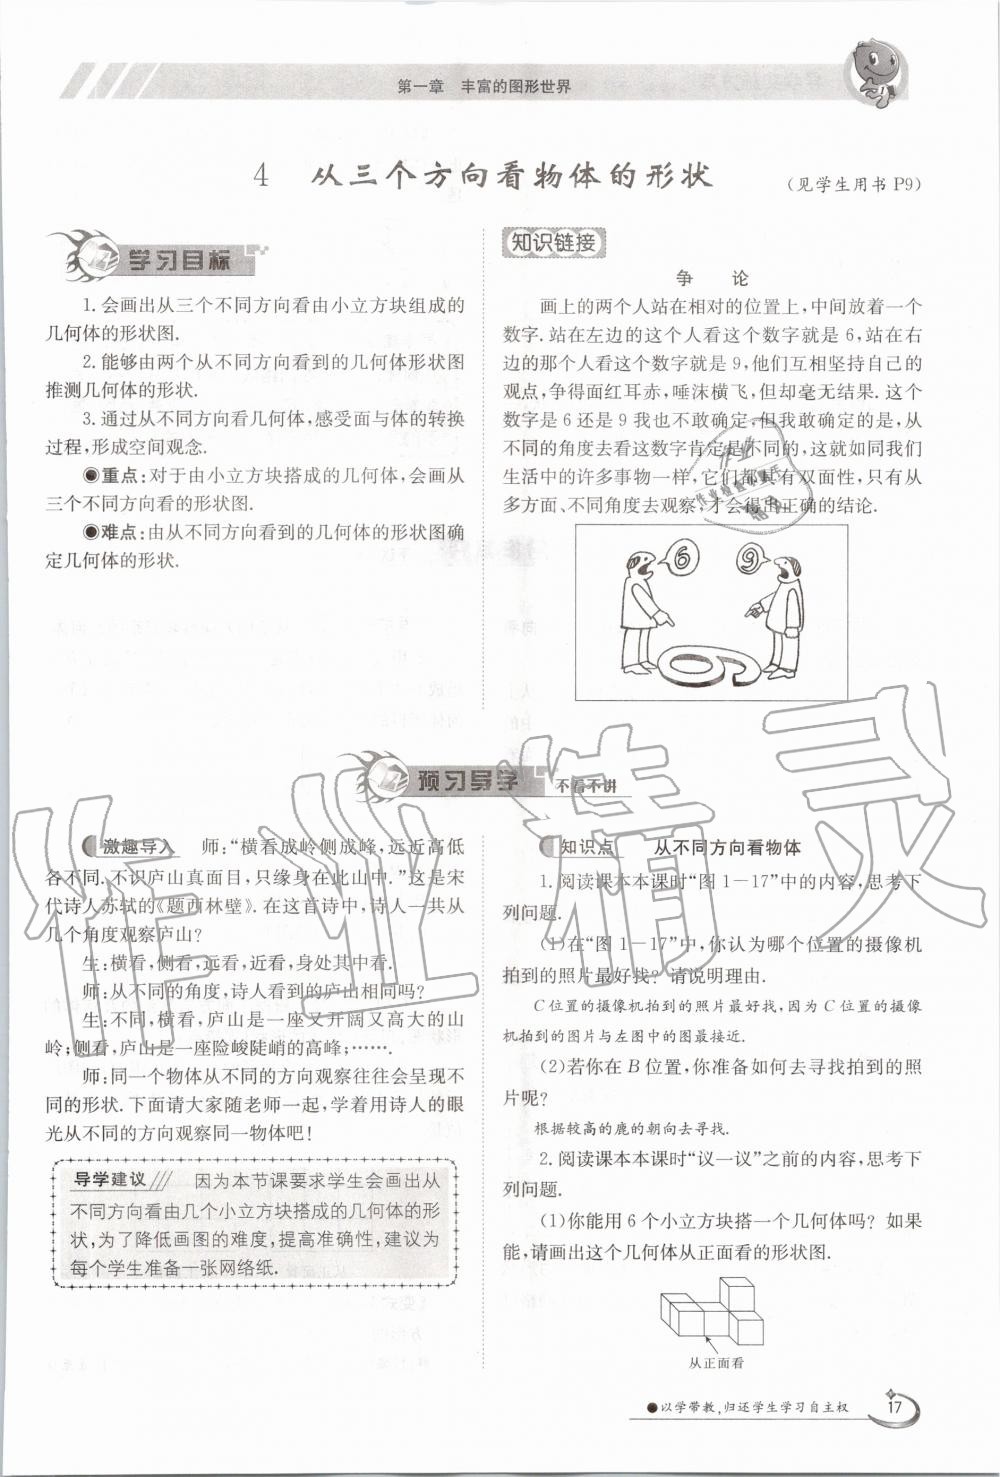 第一章　丰富的图形世界
4　从三个方向看物体的形状　（见学生用书 P9）
学习目标
1. 会画出从三个不同方向看由小立方块组成的
几何体的形状图.
2. 能够由两个从不同方向看到的几何体形状图
推测几何体的形状.
3. 通过从不同方向看几何体，感受面与体的转换
过程，形成空间观念.
●重点：对于由小立方块搭成的几何体，会画从
三个不同方向看的形状图.
●难点：由从不同方向看到的几何体的形状图确
定几何体的形状.
知识链接
争　论
画上的两个人站在相对的位置上，中间放着一个
数字. 站在左边的这个人看这个数字就是 6，站在右
边的那个人看这个数字就是 9，他们互相坚持自己的
观点，争得面红耳赤，唾沫横飞，但却毫无结果. 这个
数字是 6 还是 9 我也不敢确定，但我敢确定的是，从
不同的角度去看这数字肯定是不同的，这就如同我们
生活中的许多事物一样，它们都具有双面性，只有从
多方面、不同角度去观察，才会得出正确的结论.
6 9
预习导学　不看不讲
激趣导入　师：“横看成岭侧成峰，远近高低
各不同. 不识庐山真面目，只缘身在此山中.”这是宋
代诗人苏轼的《题西林壁》. 在这首诗中，诗人一共从
几个角度观察庐山？
生：横看，侧看，远看，近看，身处其中看.
师：从不同的角度，诗人看到的庐山相同吗？
生：不同，横看，庐山是一座又开阔又高大的山
岭；侧看，庐山是一座险峻陡峭的高峰；…….
师：同一个物体从不同的方向观察往往会呈现不
同的形状. 下面请大家随老师一起，学着用诗人的眼
光从不同的方向观察同一物体吧！
导学建议　因为本节课要求学生会画出从
不同方向看由几个小立方块搭成的几何体的形
状，为了降低画图的难度，提高准确性，建议为
每个学生准备一张网络纸.
知识点　从不同方向看物体
1. 阅读课本本课时“图 1－17”中的内容，思考下
列问题.
(1)在“图 1－17”中，你认为哪个位置的摄像机
拍到的照片最好找？请说明理由.
C 位置的摄像机拍到的照片最好找，因为 C 位置的摄像
机拍到的图片与左图中的图最接近.
(2)若你在 B 位置，你准备如何去寻找拍到的照
片呢？
根据较高的鹿的朝向去寻找.
2. 阅读课本本课时“议一议”之前的内容，思考下
列问题.
(1)你能用 6 个小立方块搭一个几何体吗？如果
能，请画出这个几何体从正面看的形状图.
从正面看
●以学带教，归还学生学习自主权
17
作业精灵